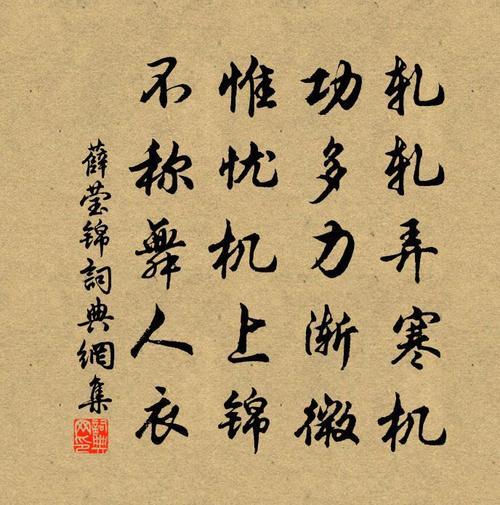 轧轧弄寒机
功多力渐微
惟忧机上锦
不称舞人衣
薛莹锦詞典網集